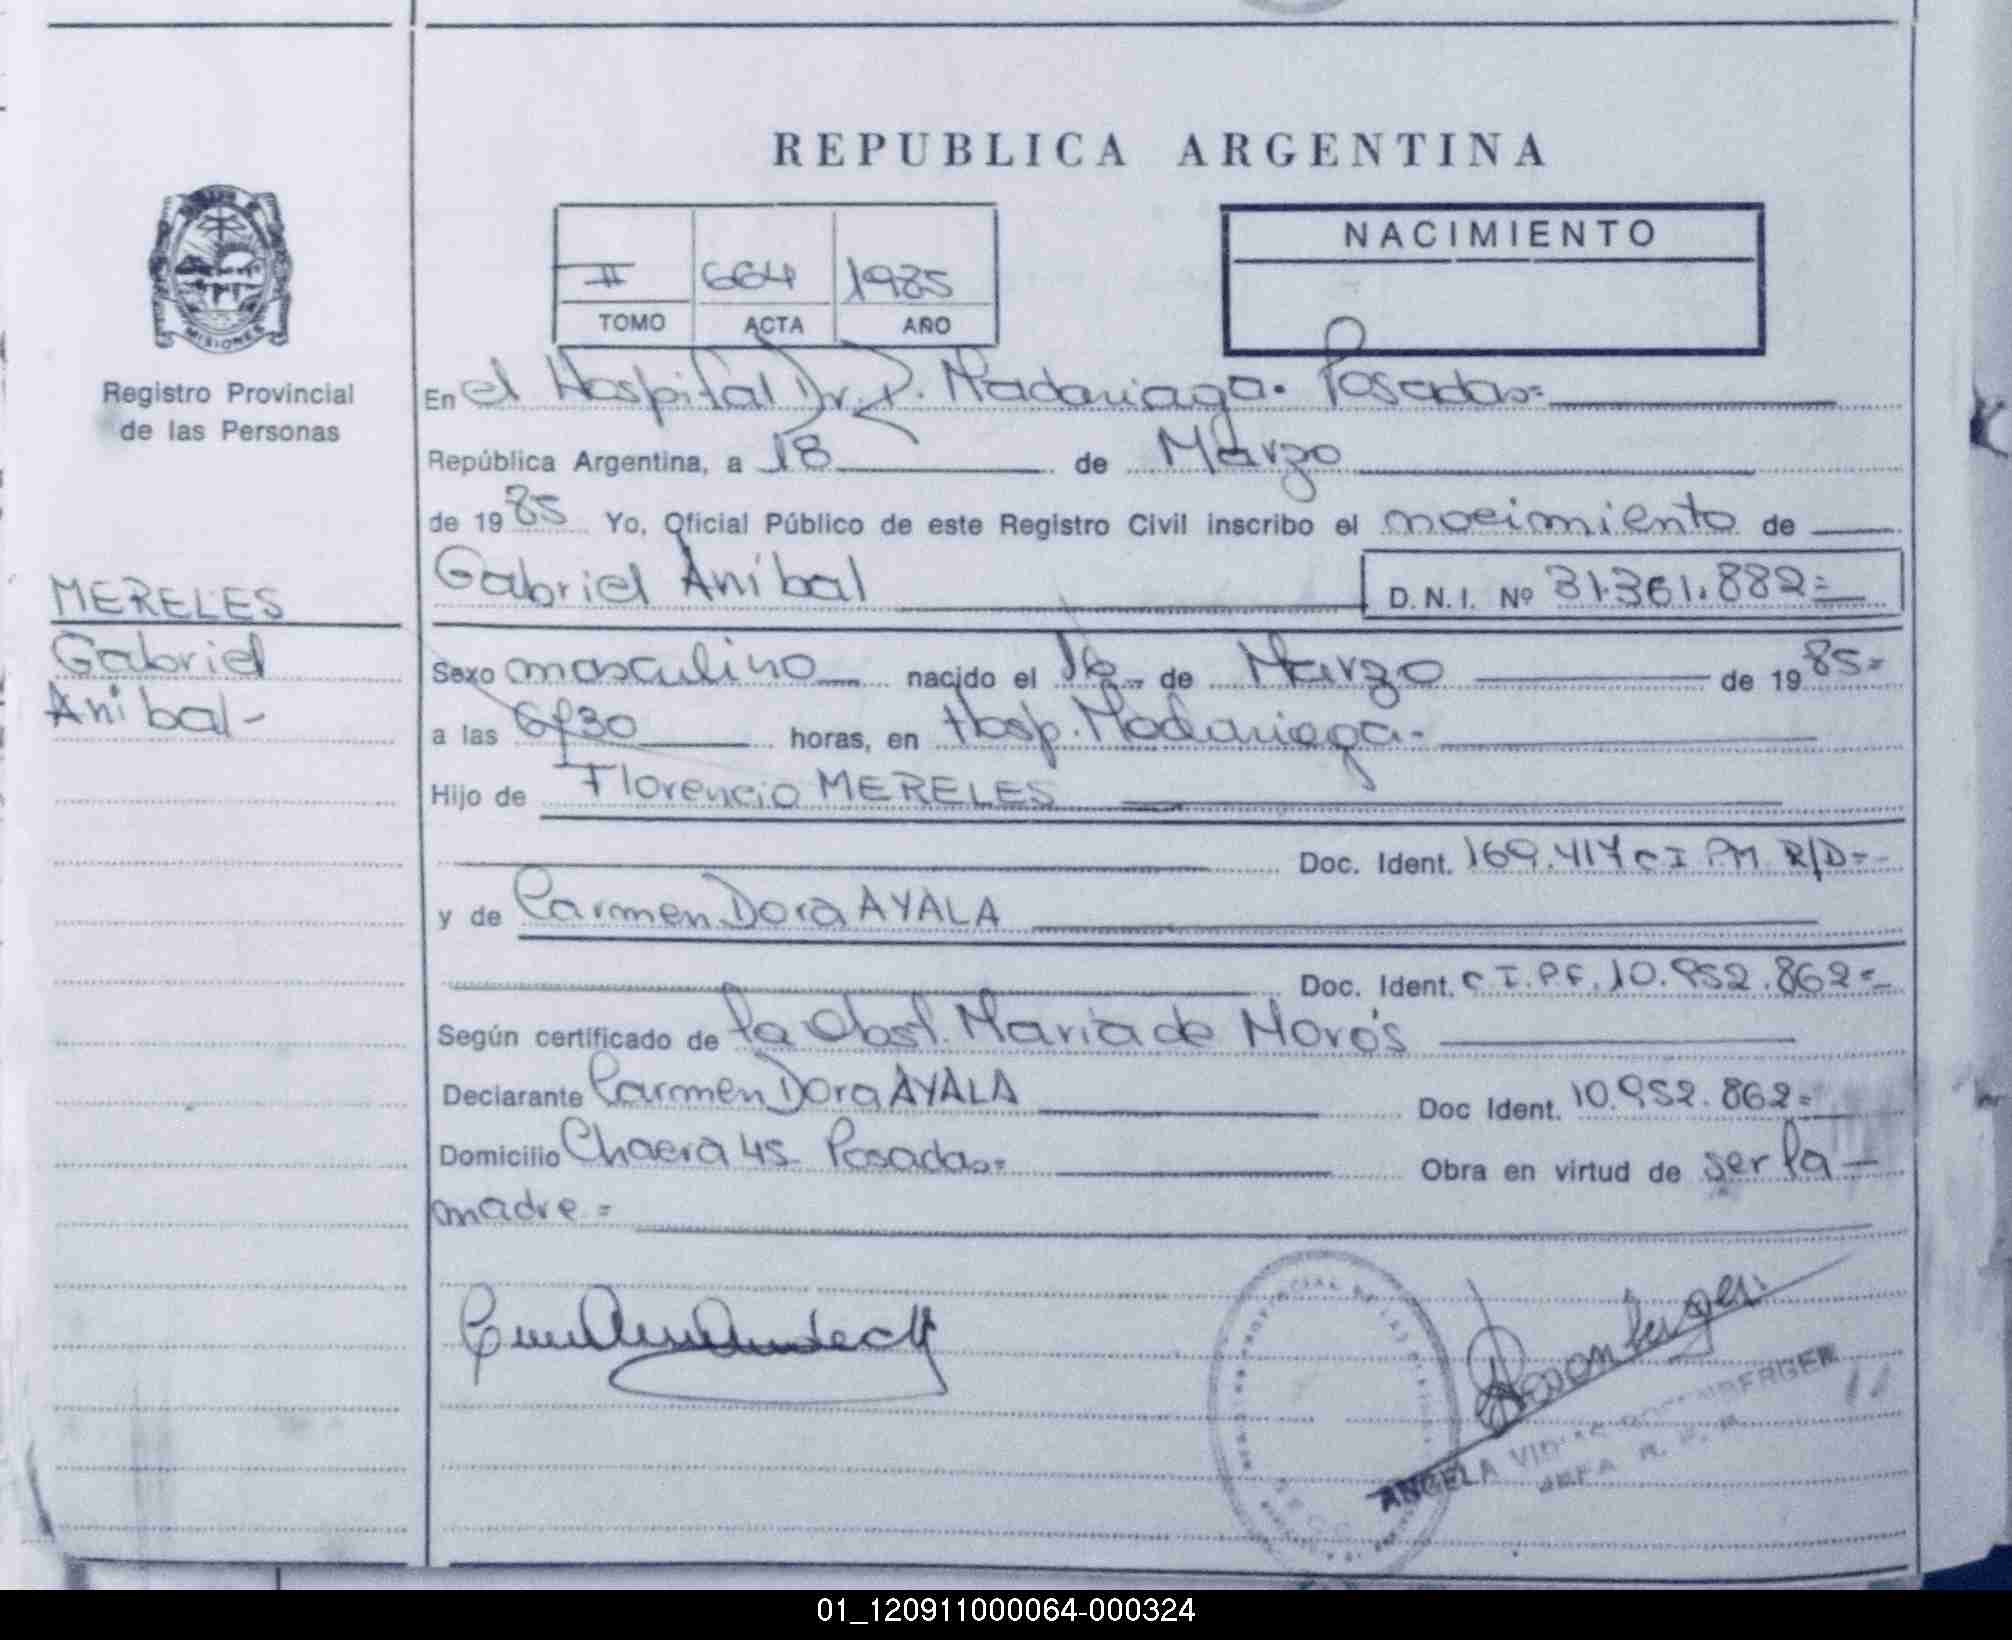 REPUBLICA ARGENTINA
MISIONES
Registro Provincial
de las Personas
II 664 1985
TOMO ACTA AÑO
NACIMIENTO
En el Hospital Dr. R. Madariaga. Posadas=
República Argentina, a 18 de Marzo
de 1985 Yo, Oficial Público de este Registro Civil inscribo el nacimiento de
MERELES
Gabriel
Anibal-
Gabriel Aníbal D.N.I. Nº 31.361.882=
Sexo masculino nacido el 16 de Marzo de 1985=
a las 6,30 horas, en Hosp. Madariaga.
Hijo de Florencio MERELES
Doc. Ident. 169.417 C I PM R/D=
y de Carmen Dora AYALA
Doc. Ident. C I. P.F. 10.952.862=
Según certificado de la Obst. Maria de Morós
Declarante Carmen Dora AYALA Doc Ident. 10.952.862=
Domicilio Chacra 45 Posadas= Obra en virtud de ser la
madre=
ANGELA
JEFA R.
01_120911000064-000324